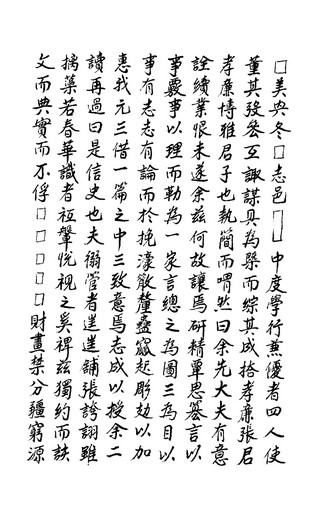 □美典冬□志邑□□中度學行兼優者四人使
董其發咨互諏謀具為槩而綜其成掊孝廉張君
孝廉博雅君子也執簡而喟然曰余先大夫有意
詮續業恨未遂余茲何故讓焉研精覃思篹言以
事覈事以理而勒為一家言總之為圖三為目以
事有志志有論而於挽濠散釐蠹竄起彫劾以加
惠我元三借一篇之中三致意焉志成以授余二
讀再過曰是信史也夫搦管者遑遑鋪張誇詡雖
摛藻若春華識者祗鞶帨視之奚裨茲獨約而詼
文而典實而不俘□□□□□財畫禁分疆窮源